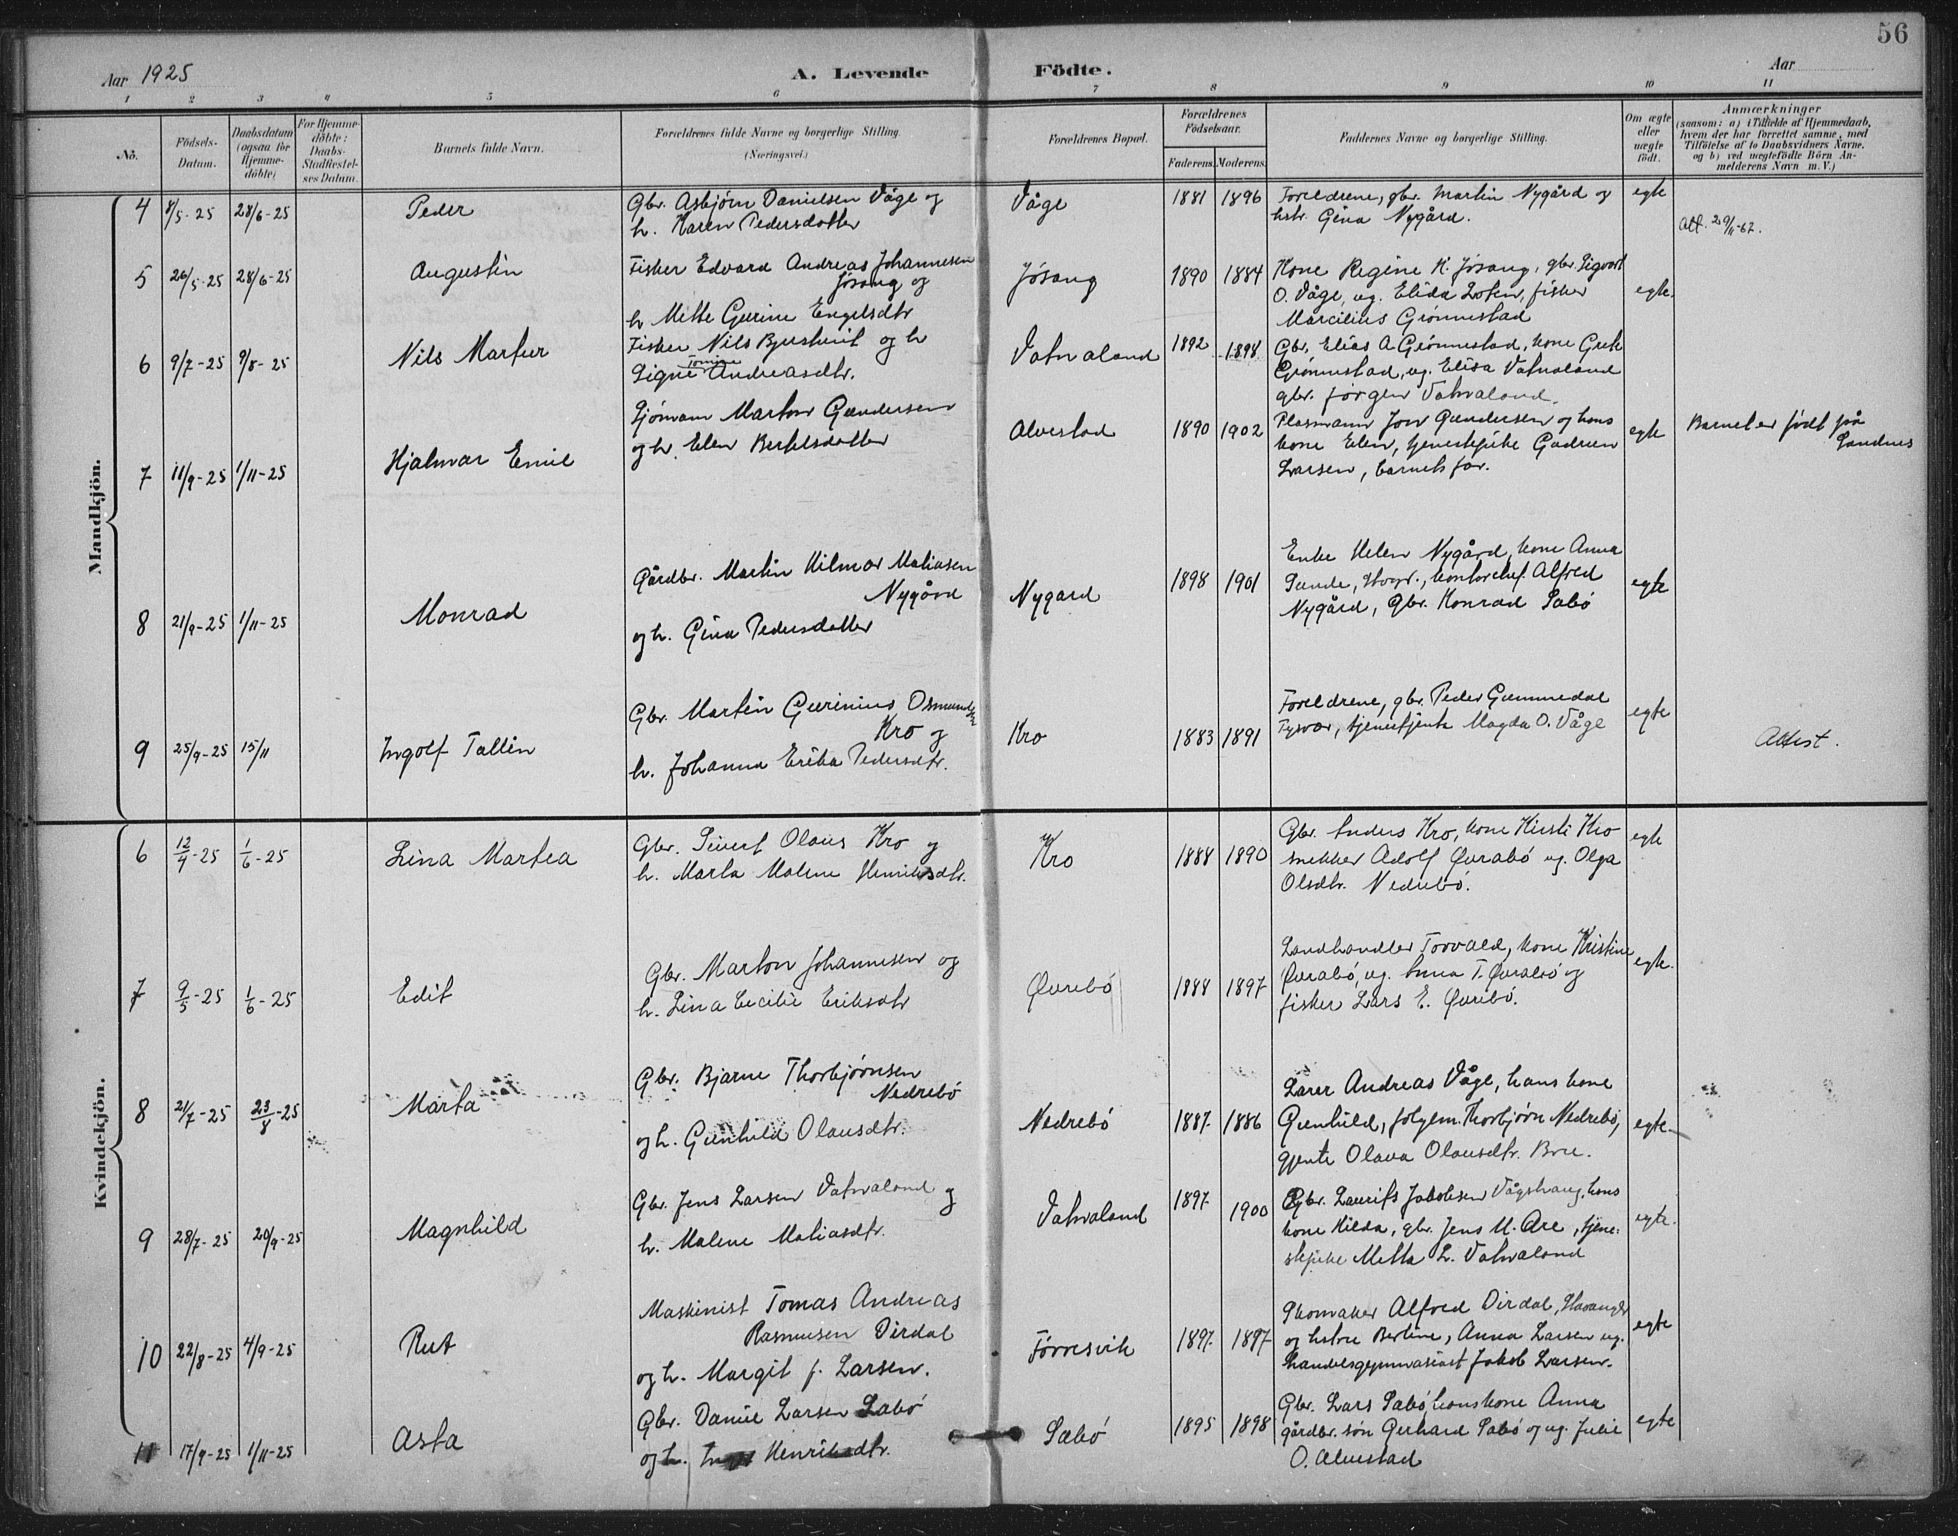 56
Aar 1925
A. Levende Födte.
Aar
1 2 3 4 5 6 7 8 9 10 11
No.
Födsels-Datum.
Daabsdatum (ogsaa for Hjemme-döbte)
For Hjemme-döbte: Daabs-Stadfæstel-ses Datum.
Barnets fulde Navn.
Forældrenes fulde Navne og borgerlige Stilling. (Næringsvei.)
Forældrenes Bopæl.
Forældrenes Födselsaar.
Faderens. Moderens.
Faddernes Navne og borgerlige Stilling.
Om ægte eller uægte födt.
Anmærkninger
(saasom: a) i Tilfælde af Hjemmedaab, hvem der har forrettet samme, med Tilföielse af to Daabsvidners Navne. og b) ved uægtefödte Börn An-melderens Navn m. V.)
Mandkjön.
4 8/5-25 28/6-25 Peder
Gbr. Asbjørn Danielsen Våge og
h. Karen Pedersdatter
Våge 1881 1896
Foreldrene, gbr. Martin Nygård og
hstr. Gina Nygård.
egte
Att. 29/11-62.
5 26/5-25 28/6-25 Augustin
Fisker Edvard Andreas Johannesen
Jøsang og
h. Mette Gurine Engelsdtr
Jøsang 1890 1884
Kone Regine K. Jøsang, gbr. Sigvart
O. Våge, ug. Elida Lofen, fisker
Marcilius Grønnestad
egte.
6 9/7-25 9/8-25 Nils Martur
Fisker Nils Bjerkevit og h
Signe Tomine Andreasdtr.
Vatnaland 1892 1898
Gbr. Elias A Grønnestad, kone Grete
Grønnestad, ug. Elisa Vatnaland
gbr. Jørgen Vatnaland.
7 11/9-25 1/11-25 Hjalmar Emil
Sjømann Marton Gundersen
og h. Elen Bertelsdatter
Alvestad 1890 1902
Plasmann Jon Gundersen og hans
kone Elen, tjenestepike Gudrun
Larsen, barnets far.
egte
Barnet er født på
Sandnes
8 21/9-25 1/11-25 Monrad
Gårdbr. Martin Hilmar Matiasen
Nygård
og h. Gina Pedersdatter
Nygard 1898 1901
Enke Helen Nygård, kone Anna
Sande, Stvgr., kontorchef. Alfred
Nygård, Gbr. Konrad Sabø
egte
9 25/9-25 15/11 Ingolf Tallin
Gbr. Martin Gurinius Osmundsen
Kro og
h. Johanna Erika Pedersdtr.
Kro 1883 1891
Foreldrene, gbr. Peder Gummedal
Tysvær, tjenestjente Magda O. Våge
egte
Attest.
Kvindekjön.
6 12/4-25 1/6-25 Lina Martea
Gbr. Sivert Olaus Kro og
h. Marta Malene Henriksdtr.
Kro 1888 1890
Gbr. Anders Kro, kone Kirsti Kro
snekker Adolf Øvrabø ug. Olga
Olsdtr. Nedrebø.
egte
7 9/5-25 1/6-25 Edit
Gbr. Marton Johannesen og
h. Lina Cecilie Eriksdtr
Øvrebø 1888 1897
Landhandler Torvald, kone Kristine
Øvrabø, ug. Anna T. Øvrabø og
fisker Lars E. Øvribø.
egte.
8 21/7-25 23/8-25 Marta
Gbr. Bjarne Thorbjørnsen
Nedrebø
og h. Gunhild Olausdtr.
Nedrebø 1887. 1886
Lærer Andreas Våge, hans kone
Gunhild, folgem. Thorbjørn Nedrebø,
gjente Olava Olausdtr. Bru.
egte
9 28/7-25 20/9-25 Magnhild
Gbr. Jens Larsen Vatnaland og
h. Malene Matiasdtr.
Vatnaland 1897. 1900
Gbr. Laurits Jakobsen Vågshaug, hans
kone Hilda, gbr. Jens M. Are, tjene-
stepike Metta L. Vatnaland
egte.
10 22/8-25 4/9-25 Rut
Maskinist Tomas Andreas
Rasmussen Dirdal
og h. Margit J. Larsen.
Førresvik 1897. 1897
Skomaker Alfred Dirdal, Stavanger
og hstru Bertine, Anna Larsen ug.
handelsgymnasiast Jakob Larsen.
egte
11 17/9-25 1/11-25 Asta
Gbr. Daniel Larsen Sabø
og h. Henriksdtr.
Sæbø 1895 1898
Gbr. Lars Sabø, hans kone Anna
gårdbr. søn Gerhard Sabø og ug. Julie
O. Alvestad
egte